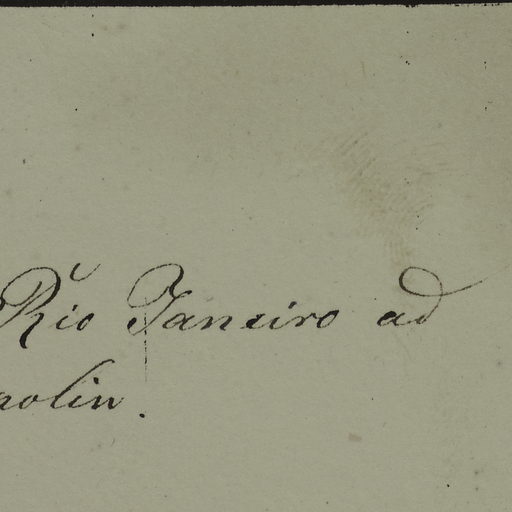 Rio Janeiro ad
aolin.